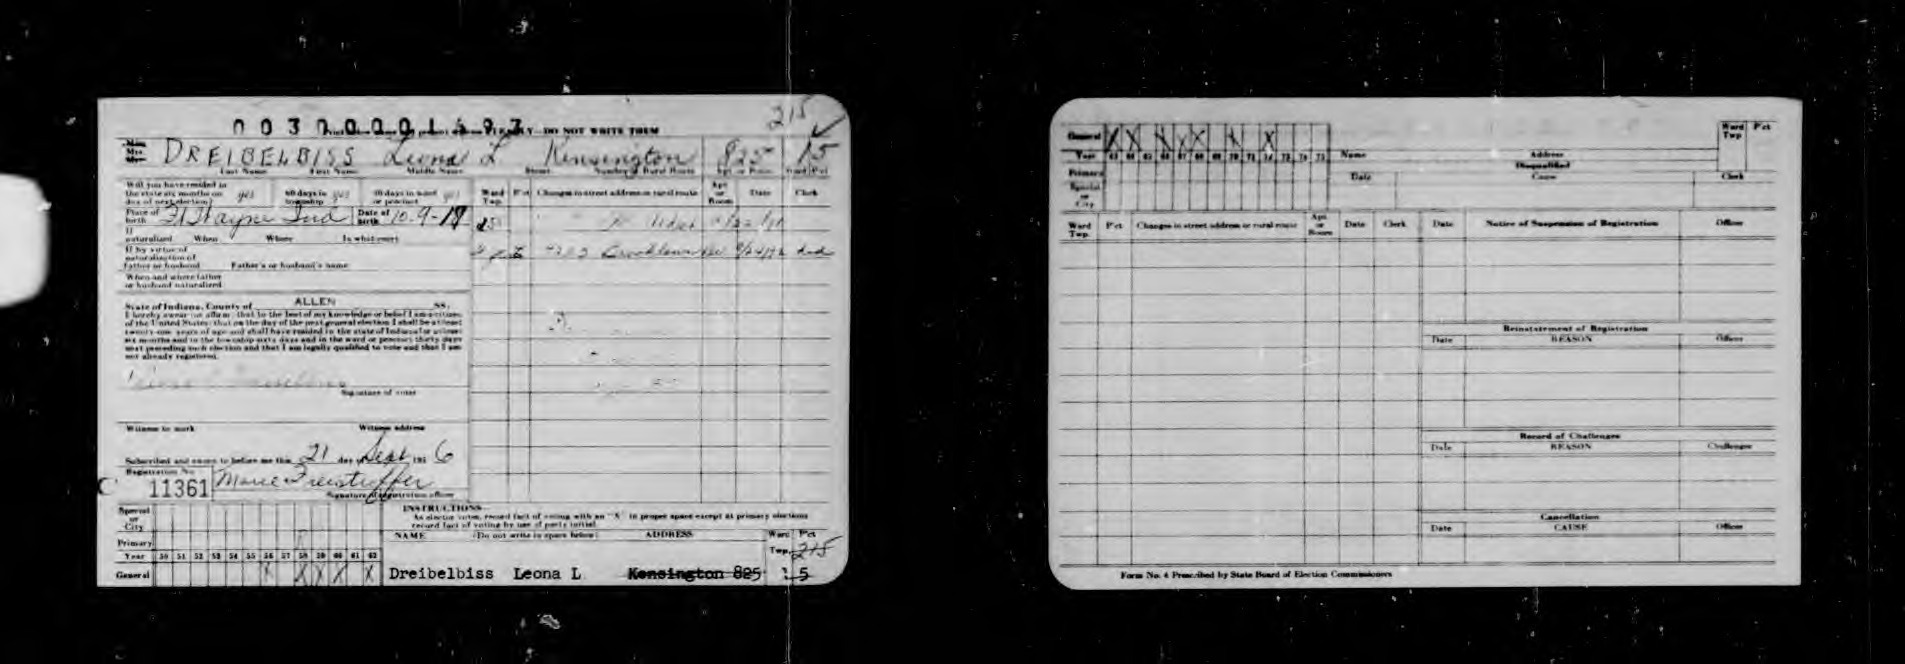 215
DO NOT WRITE THEM
Miss
Mrs.
Mr.
DREIBELBISS Leona L Kensington 825 15
Last Name First Name Middle Name Street Number or Rural Route Apt. or Room Ward Pct
Will you have resided in
the state six months on
day of next election? yes 60 days in township yes 30 days in ward or precinct yes
Place of birth Ft Wayne Ind Date of birth 10-9-
If naturalized When Where In what court
If by virtue of
naturalization of
father or husband Father's or husband's name
When and where father
or husband naturalized
Ward Twp. P'ct Changes in street address or rural route Apt or Room Date Clerk
Brooklawn
State of Indiana, County of ALLEN SS:
I hereby swear (or affirm) that to the best of my knowledge or belief I am a citizen
of the United States; that on the day of the next general election I shall be at least
twenty-one years of age and shall have resided in the state of Indiana for at least
six months and in the township sixty days and in the ward or precinct thirty days
next preceding such election and that I am legally qualified to vote and that I am
not already registered.
Signature of voter
Witness to mark Witness address
Subscribed and sworn to before me this 21 day of Sept 195 6
Registration No.
C 11361 Marie
Signature of registration officer
INSTRUCTIONS
As elector votes, record fact of voting with an "X" in proper space except at primary elections
record fact of voting by use of party initial.
NAME (Do not write in space below) ADDRESS Ward Twp. P'ct
215
Dreibelbiss Leona L Kensington 825 15
Special
or
City
Primary
Year 50 51 52 53 54 55 56 57 58 59 60 61 62
General X X X X X
General X X X X X X X
Year 63 64 65 66 67 68 69 70 71 72 73 74 75
Primary
Special
or
City
Name Address Ward Twp P'ct
Disqualified
Date Cause Clerk
Ward Twp. P'ct Changes in street address or rural route Apt or Room Date Clerk
Date Notice of Suspension of Registration Officer
Reinstatement of Registration
Date REASON Officer
Record of Challenges
Date REASON Challenger
Cancellation
Date CAUSE Officer
Form No. 4 Prescribed by State Board of Election Commissioners